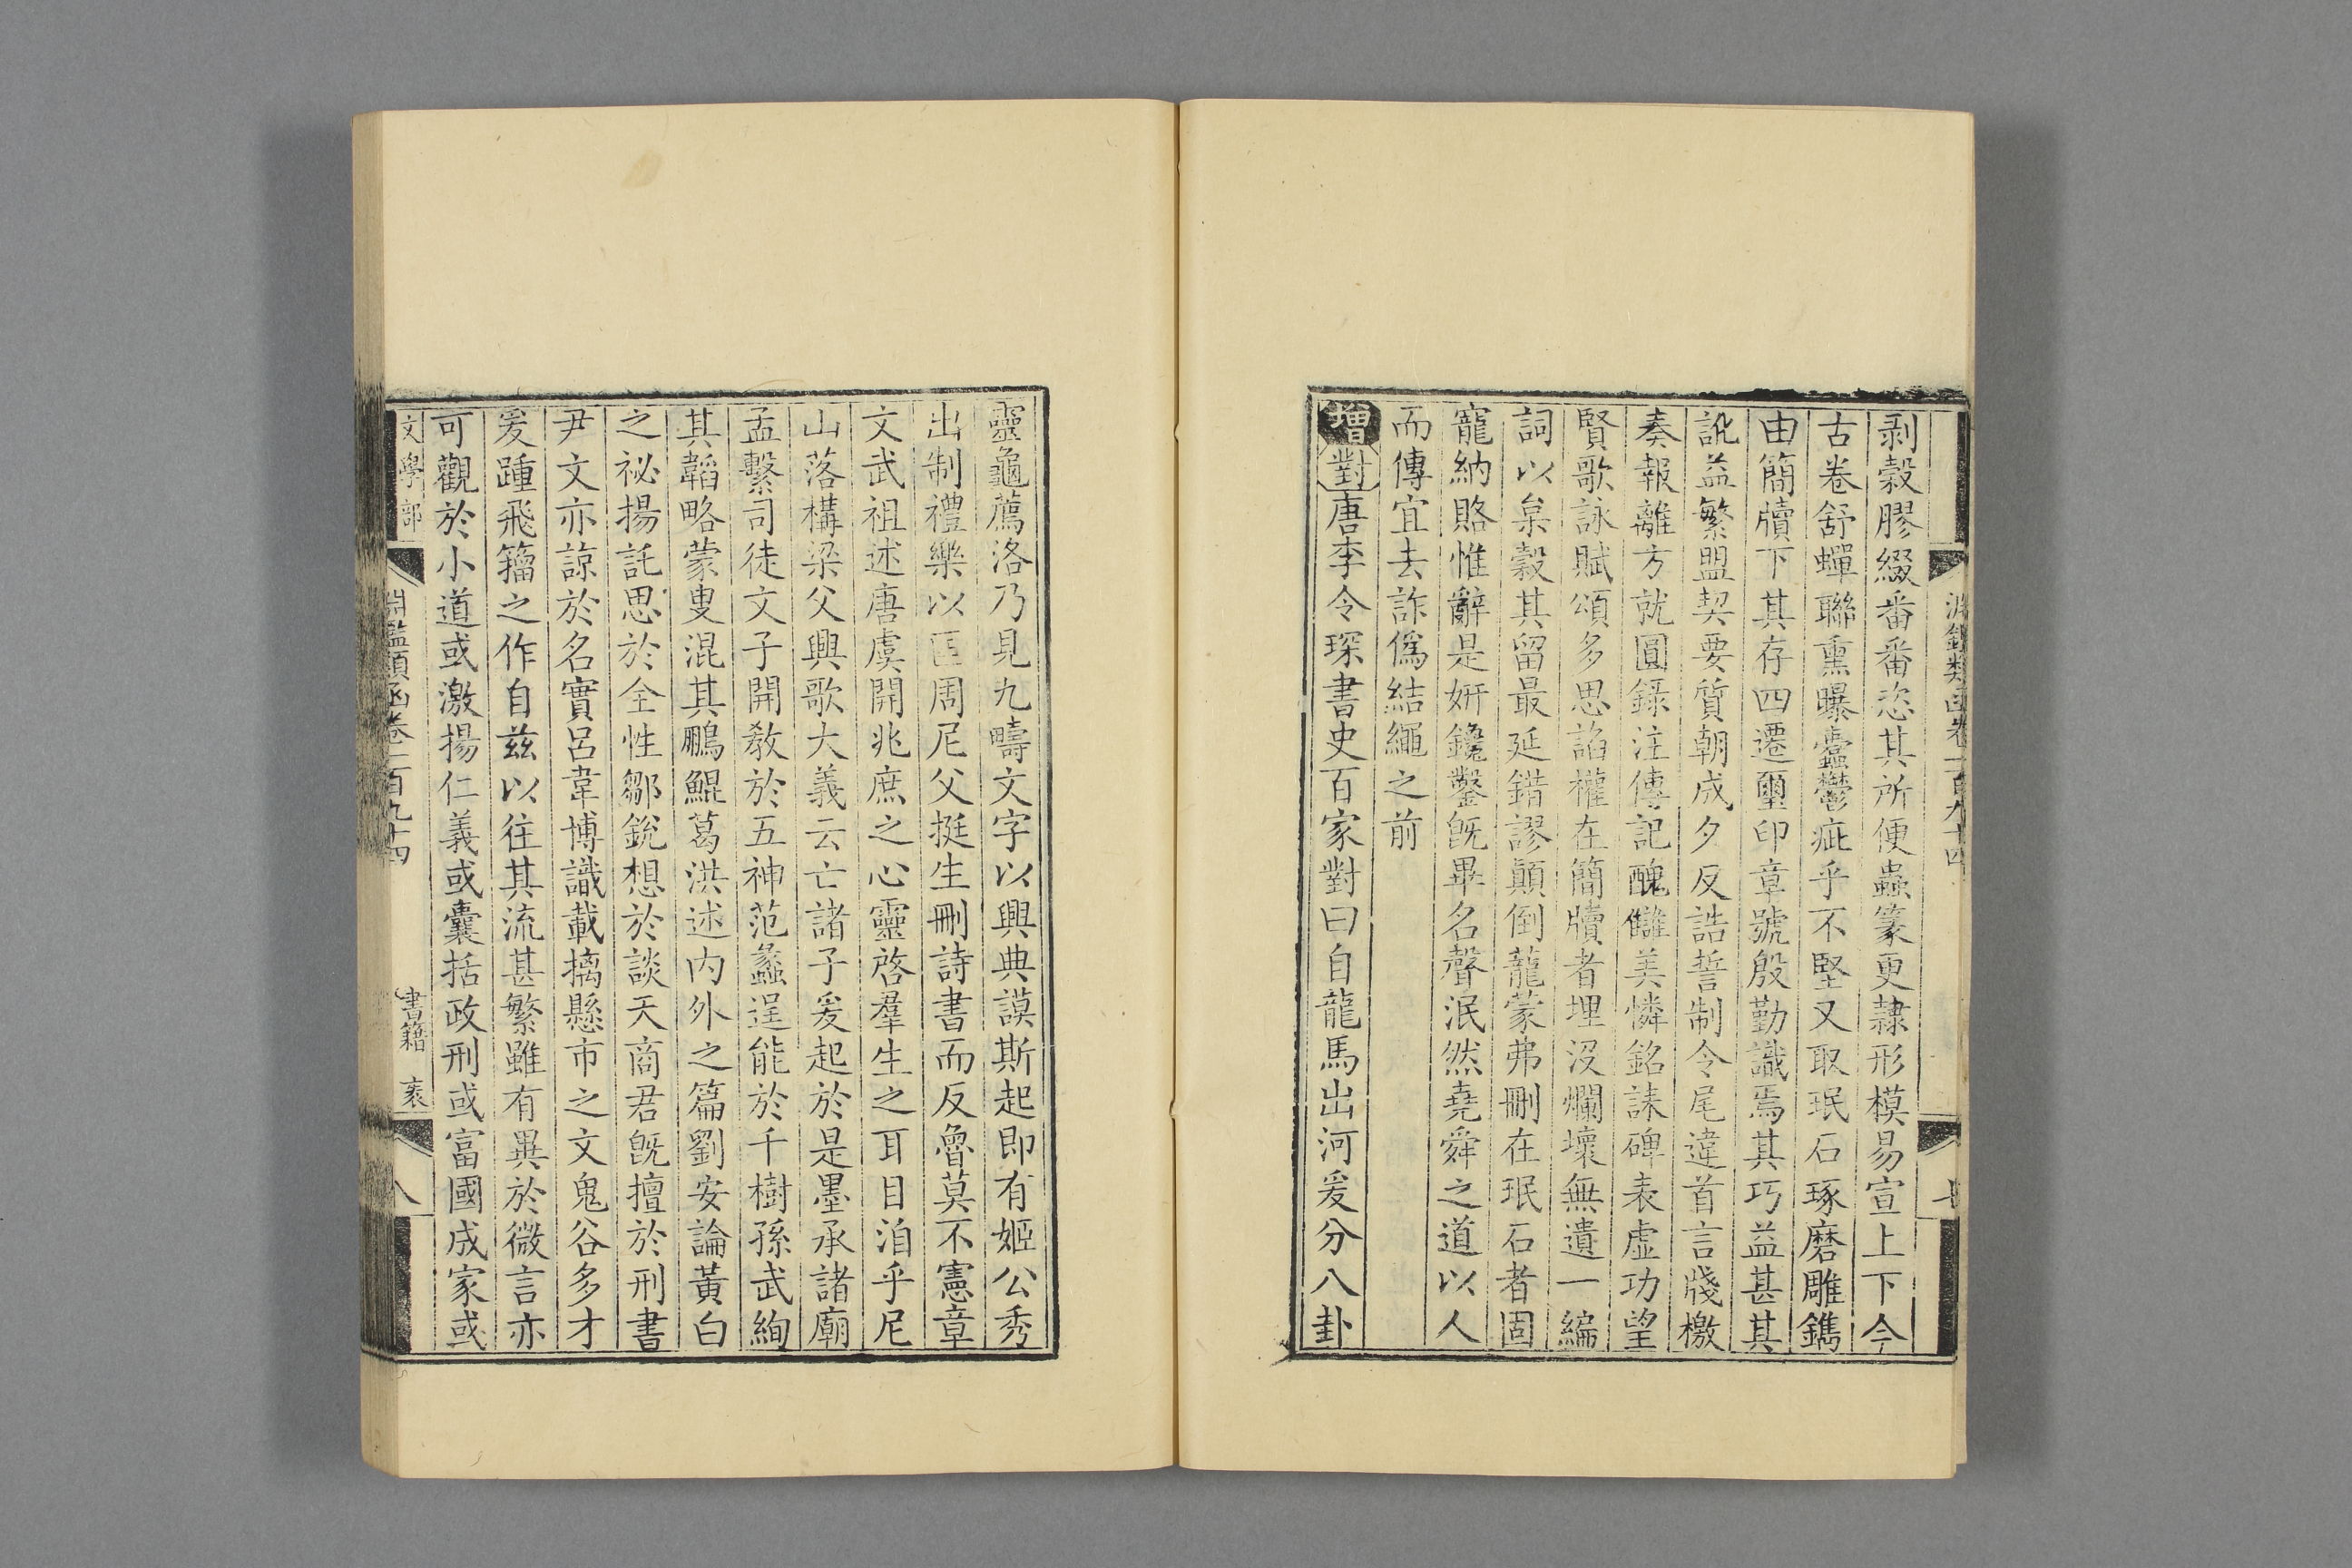 淵鑑類函卷一百九十四
七
剥穀膠綴番番恣其所便蟲篆更隷形模易宣上下今
古卷舒蟬聯熏曝蠹鬱疵乎不堅又取珉石琢磨雕鐫
由簡牘下其存四遷璽印章號殷勤識焉其巧益甚其
訛益繁盟契要質朝成夕反誥誓制令尾違首言牋檄
奏報離方就圓錄注傳記醜讎美憐銘誄碑表虛功望
賢歌詠賦頌多思諂權在簡牘者埋没爛壞無遺一編
詞以枲穀其留最延錯謬顚倒蘢蒙弗刪在珉石者固
寵納賂惟辭是妍鑱鑿旣畢名聲泯然堯舜之道以人
而傳宜去詐僞結繩之前
增對唐李令琛書史百家對曰自龍馬出河爰分八卦
靈龜薦洛乃見九疇文字以興典謨斯起即有姬公秀
出制禮樂以匡周尼父挺生刪詩書而反魯莫不憲章
文武祖述唐虞開兆庶之心靈啓羣生之耳目洎乎尼
山落構梁父興歌大義云亡諸子爰起於是墨承諸廟
孟繫司徒文子開敎於五神范蠡逞能於千樹孫武絢
其韜略蒙叟混其鵬鯤葛洪述内外之篇劉安論黃白
之祕揚託思於全性鄒銳想於談天商君旣擅於刑書
尹文亦諒於名實呂韋博識載摛懸市之文鬼谷多才
爰踵飛籀之作自兹以往其流甚繁雖有異於微言亦
可觀於小道或激揚仁義或囊括政刑或富國成家或
文學部
淵鑑類函卷一百九十四
書籍
袠
八